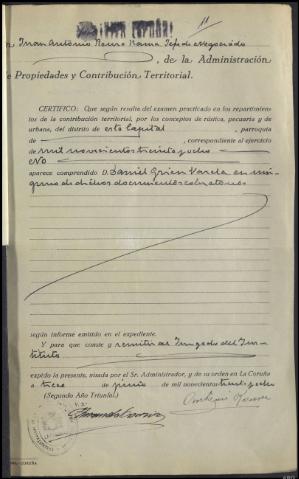 11
n Juan Antonio Jefe de Negociado
, de la Administración
e Propiedades y Contribución Territorial.
CERTIFICO: Que según resulta del examen practicado en los repartimien-
tos de la contribución territorial, por los conceptos de rústica, pecuaria y de
urbana, del distrito de esta Capital, parroquia
de , correspondiente al ejercicio
de mil novecientos treinta y ocho
No
aparece comprendido D. Daniel Varela en nin-
guno de dichos documentos cobratorios
según informe emitido en el expediente.
Y para que conste y remitir al Juzgado del Ins-
tituto
expido la presente, visada por el Sr. Administrador, y de su orden en La Coruña
a trece de junio de mil novecientos treinta y ocho
(Segundo Año Triunfal.)
V.º B.º